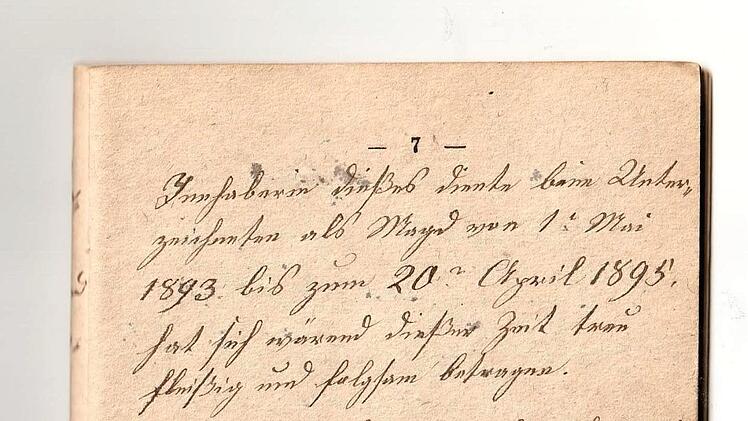 — 7 —
Innhaberin dießes diente beim Unter-
zeichneten als Magd von 1t Mai
1893 bis zum 20n April 1895.
hat sich wärend dießer Zeit treu
fleißig und folgsam betragen.